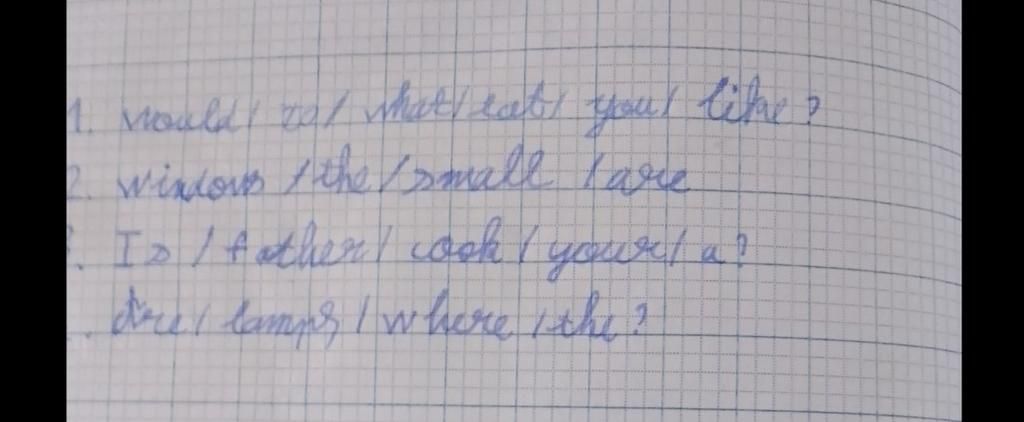 1. would / to / what / eat / you / like?
2. windows / the / small / are
. Is / father / cook / your / a?
. Are / lamps / where / the?